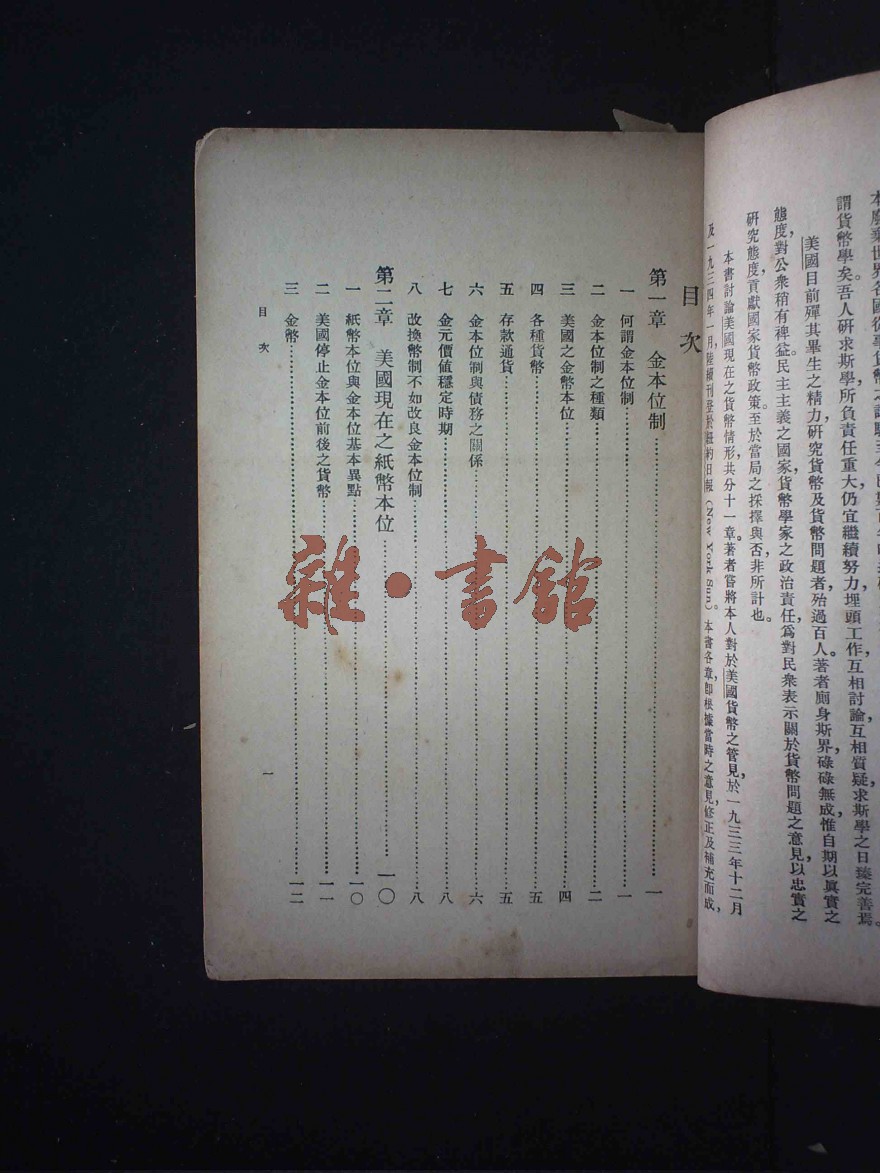 謂貨幣學矣。吾人研求斯學，所負責任重大，仍宜繼續努力，埋頭工作，互相討論，互相質疑，求斯學之日臻完善焉。
美國目前殫其畢生之精力，研究貨幣及貨幣問題者，殆過百人。著者廁身斯界，碌碌無成，惟自期以眞實之
態度，對公衆稍有裨益。民主主義之國家，貨幣學家之政治責任，爲對民衆表示關於貨幣問題之意見，以忠實之
研究態度，貢獻國家貨幣政策。至於當局之採擇與否，非所計也。
本書討論美國現在之貨幣情形，共分十一章。著者嘗將本人對於美國貨幣之管見，於一九三三年十二月
及一九三四年一月，陸續刊登於紐約日報（New York Sun）。本書各章，卽根據當時之意見，修正及補充而成，
目次
第一章 金本位制…一
一 何謂金本位制…一
二 金本位制之種類…二
三 美國之金幣本位…四
四 各種貨幣…五
五 存款通貨…五
六 金本位制與債務之關係…六
七 金元價値穩定時期…八
八 改換幣制不如改良金本位制…八
第二章 美國現在之紙幣本位…一〇
一 紙幣本位與金本位基本異點…一〇
二 美國停止金本位前後之貨幣…一一
三 金幣…一二
目次
一
雜·書館